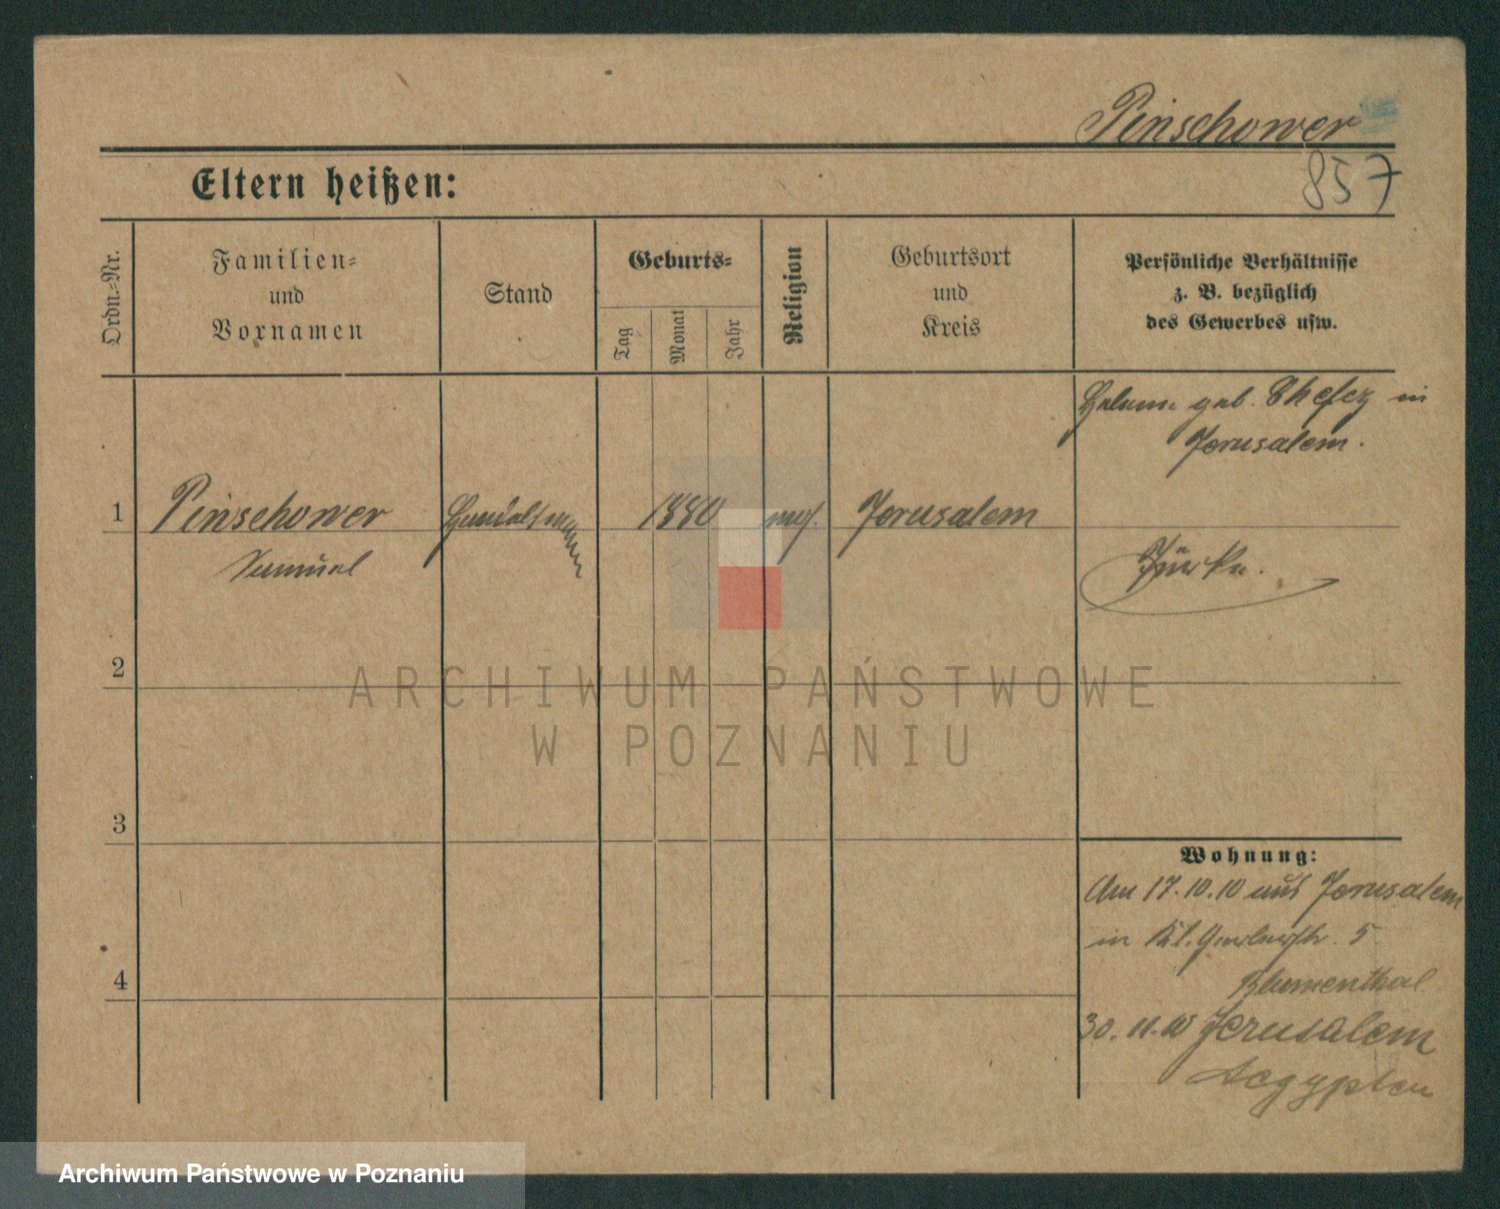 Pinschower
857
Eltern heißen:
Ordn.-Nr.
Familien-
und
Vornamen
Stand
Geburts-
Tag
Monat
Jahr
Religion
Geburtsort
und
Kreis
Persönliche Verhältnisse
z. B. bezüglich
des Gewerbes usw.
geb. Chefez in
Jerusalem.
1
Pinschower
Handelsmann
1880
mos.
Jerusalem
Samuel
Türke.
2
ARCHIWUM PAŃSTWOWE
W POZNANIU
3
Wohnung:
Am 17.10.10 aus Jerusalem
in Kl. 5
Blumenthal
4
30.11.10 Jerusalem
Aegypten
Archiwum Państwowe w Poznaniu